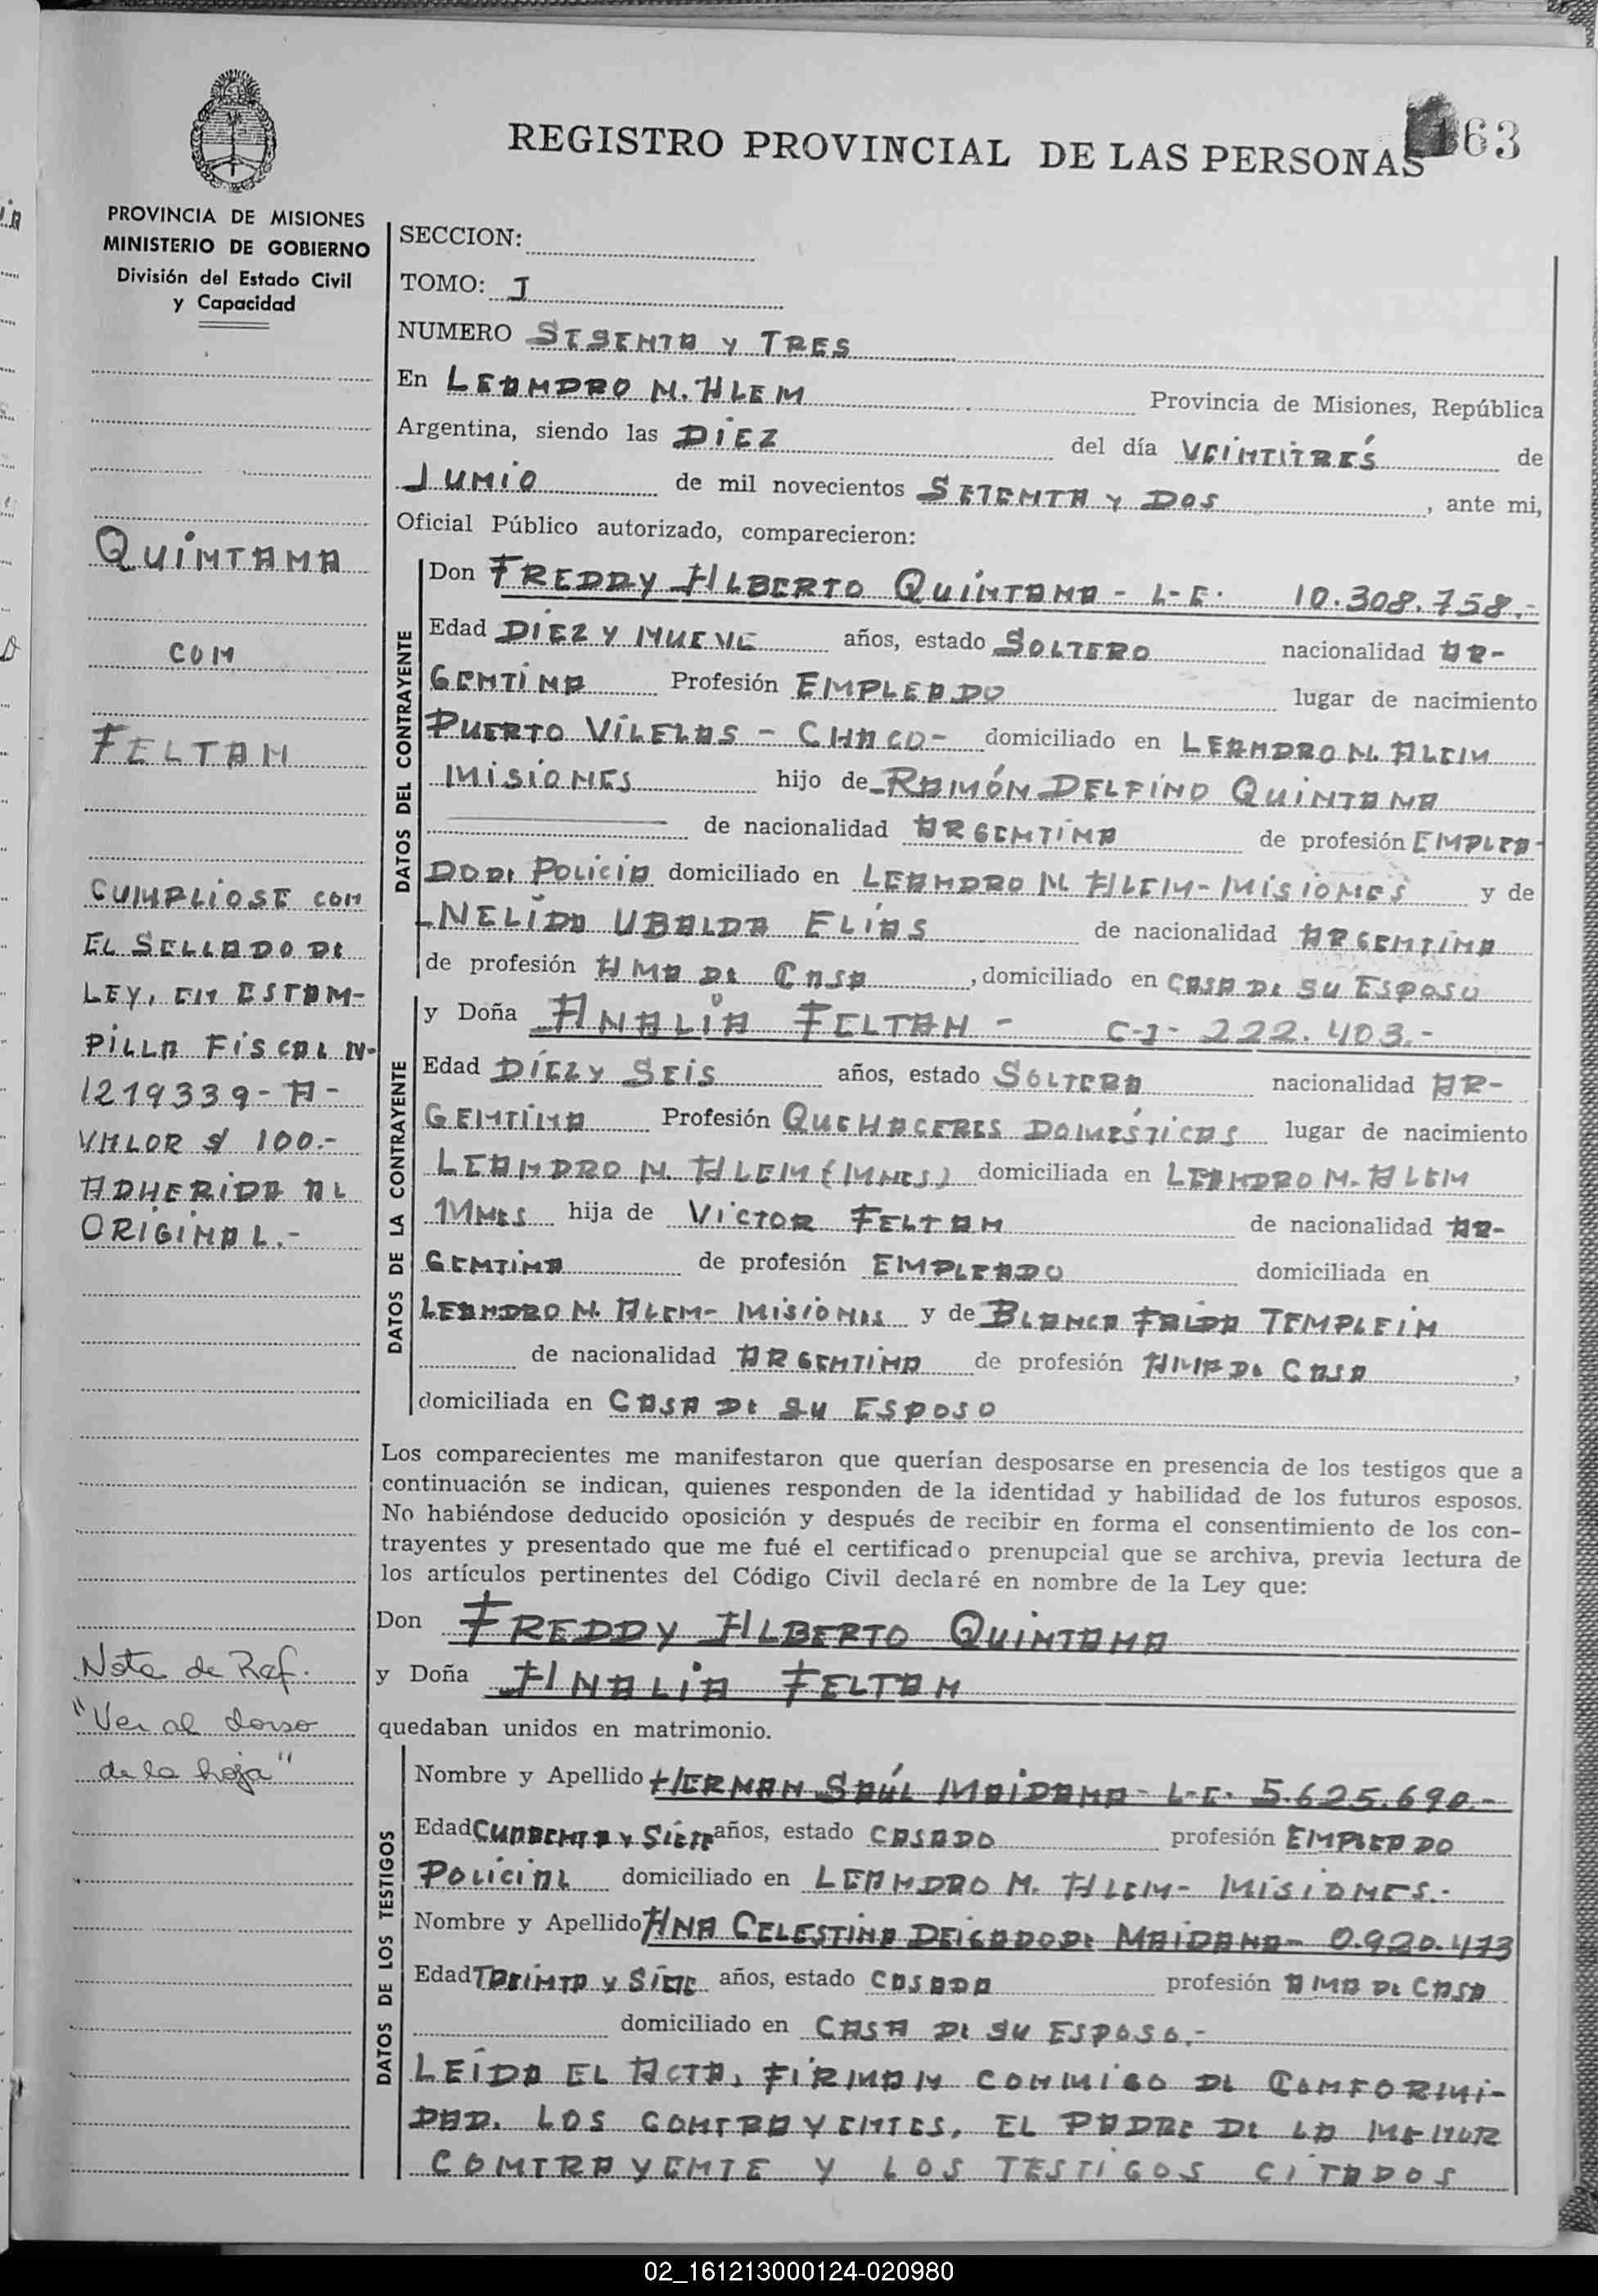 163
REGISTRO PROVINCIAL DE LAS PERSONAS
PROVINCIA DE MISIONES
MINISTERIO DE GOBIERNO
División del Estado Civil
y Capacidad
QUINTANA
CON
FELTAN
CUMPLIOSE CON
EL SELLADO DE
LEY, EN ESTAM-
PILLA FISCAL N-
1219339-A-
VALOR $ 100.-
ADHERIDA AL
ORIGINAL.-
Nota de Ref.
"Ver al dorso
de la hoja"
SECCION:
TOMO: I
NUMERO SESENTA Y TRES
En LEANDRO N. ALEM Provincia de Misiones, República
Argentina, siendo las DIEZ del día VEINTITRÉS de
JUNIO de mil novecientos SETENTA Y DOS, ante mi,
Oficial Público autorizado, comparecieron:
DATOS DEL CONTRAYENTE
Don FREDDY ALBERTO QUINTANA - L-E. 10.308.758.-
Edad DIEZ Y NUEVE años, estado SOLTERO nacionalidad AR-
GENTINA Profesión EMPLEADO lugar de nacimiento
PUERTO VILELAS - CHACO- domiciliado en LEANDRO N. ALEM
MISIONES hijo de RAMÓN DELFINO QUINTANA
de nacionalidad ARGENTINA de profesión EMPLEA-
DO DE POLICIA domiciliado en LEANDRO N. ALEM-MISIONES y de
NELIDA UBALDA ELÍAS de nacionalidad ARGENTINA
de profesión AMA DE CASA, domiciliado en CASA DE SU ESPOSO
DATOS DE LA CONTRAYENTE
y Doña ANALIA FELTAN - C-I- 222.403.-
Edad DÍEZ Y SEIS años, estado SOLTERA nacionalidad AR-
GENTINA Profesión QUEHACERES DOMÉSTICOS lugar de nacimiento
LEANDRO N. ALEM (MNES) domiciliada en LEANDRO N. ALEM
MNES hija de VICTOR FELTAN de nacionalidad AR-
GENTINA de profesión EMPLEADO domiciliada en
LEANDRO N. ALEM- MISIONES y de BLANCA FRIDA TEMPLEIN
de nacionalidad ARGENTINA de profesión AMA DE CASA,
domiciliada en CASA DE SU ESPOSO
Los comparecientes me manifestaron que querían desposarse en presencia de los testigos que a
continuación se indican, quienes responden de la identidad y habilidad de los futuros esposos.
No habiéndose deducido oposición y después de recibir en forma el consentimiento de los con-
trayentes y presentado que me fué el certificado prenupcial que se archiva, previa lectura de
los artículos pertinentes del Código Civil declaré en nombre de la Ley que:
Don FREDDY ALBERTO QUINTANA
y Doña ANALIA FELTAN
quedaban unidos en matrimonio.
DATOS DE LOS TESTIGOS
Nombre y Apellido HERNAN SAÚL MAIDANA- L-E. 5.625.690.-
Edad CUARENTA Y SÍETE años, estado CASADO profesión EMPLEADO
POLICIAL domiciliado en LEANDRO N. ALEM- MISIONES.-
Nombre y Apellido ANA CELESTINA DELGADO DE MAIDANA- 0.920.473
Edad TREINTA Y SÍETE años, estado CASADA profesión AMA DE CASA
domiciliado en CASA DE SU ESPOSO.-
LEÍDA EL ACTA, FIRMAN CONMIGO DE CONFORMI-
DAD. LOS CONTRAYENTES, EL PADRE DE LA MENOR
CONTRAYENTE Y LOS TESTIGOS CITADOS
02_161213000124-020980